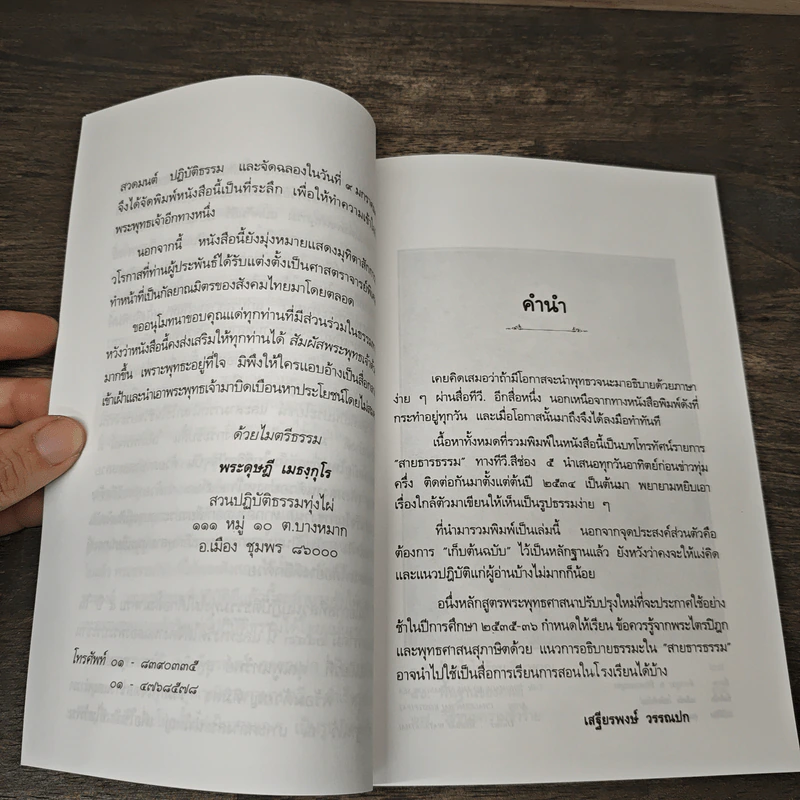 สวดมนต์ ปฏิบัติธรรม และจัดฉลองในวันที่ ๙
จึงได้จัดพิมพ์หนังสือนี้เป็นที่ระลึก เพื่อให้ทำความเข้าใจ
พระพุทธเจ้าอีกทางหนึ่ง
นอกจากนี้ หนังสือนี้ยังมุ่งหมายแสดงมุทิตา
วโรกาสที่ท่านผู้ประพันธ์ได้รับแต่งตั้งเป็นศาสตราจารย์
ทำหน้าที่เป็นกัลยาณมิตรของสังคมไทยมาโดยตลอด
ขออนุโมทนาขอบคุณแด่ทุกท่านที่มีส่วนร่วมใน
หวังว่าหนังสือนี้คงส่งเสริมให้ทุกท่านได้ สัมผัสพระพุทธเจ้า
มากขึ้น เพราะพุทธะอยู่ที่ใจ มิพึงให้ใครแอบอ้างเป็นสื่อกลาง
เข้าเฝ้าและนำเอาพระพุทธเจ้ามาบิดเบือนหาประโยชน์โดย
ด้วยไมตรีธรรม
พระดุษฎี เมธงฺกุโร
สวนปฏิบัติธรรมทุ่งไผ่
๑๑๑ หมู่ ๑๐ ต.บางหมาก
อ.เมือง ชุมพร ๘๖๐๐๐
โทรศัพท์ ๐๑ - ๘๓๙๐๓๓๕
๐๑ - ๔๗๖๘๕๗๘
คำนำ
เคยคิดเสมอว่าถ้ามีโอกาสจะนำพุทธวจนะมาอธิบายด้วยภาษา
ง่าย ๆ ผ่านสื่อทีวี. อีกสื่อหนึ่ง นอกเหนือจากทางหนังสือพิมพ์ดังที่
กระทำอยู่ทุกวัน และเมื่อโอกาสนั้นมาถึงจึงได้ลงมือทำทันที
เนื้อหาทั้งหมดที่รวมพิมพ์ในหนังสือนี้เป็นบทโทรทัศน์รายการ
"สายธารธรรม" ทางทีวี.สีช่อง ๕ นำเสนอทุกวันอาทิตย์ก่อนข่าวทุ่ม
ครึ่ง ติดต่อกันมาตั้งแต่ต้นปี ๒๕๓๔ เป็นต้นมา พยายามหยิบเอา
เรื่องใกล้ตัวมาเขียนให้เห็นเป็นรูปธรรมง่าย ๆ
ที่นำมารวมพิมพ์เป็นเล่มนี้ นอกจากจุดประสงค์ส่วนตัวคือ
ต้องการ "เก็บต้นฉบับ" ไว้เป็นหลักฐานแล้ว ยังหวังว่าคงจะให้แง่คิด
และแนวปฏิบัติแก่ผู้อ่านบ้างไม่มากก็น้อย
อนึ่งหลักสูตรพระพุทธศาสนาปรับปรุงใหม่ที่จะประกาศใช้อย่าง
ช้าในปีการศึกษา ๒๕๓๕-๓๖ กำหนดให้เรียน ข้อควรรู้จากพระไตรปิฎก
และพุทธศาสนสุภาษิตด้วย แนวการอธิบายธรรมะใน "สายธารธรรม"
อาจนำไปใช้เป็นสื่อการเรียนการสอนในโรงเรียนได้บ้าง
เสฐียรพงษ์ วรรณปก